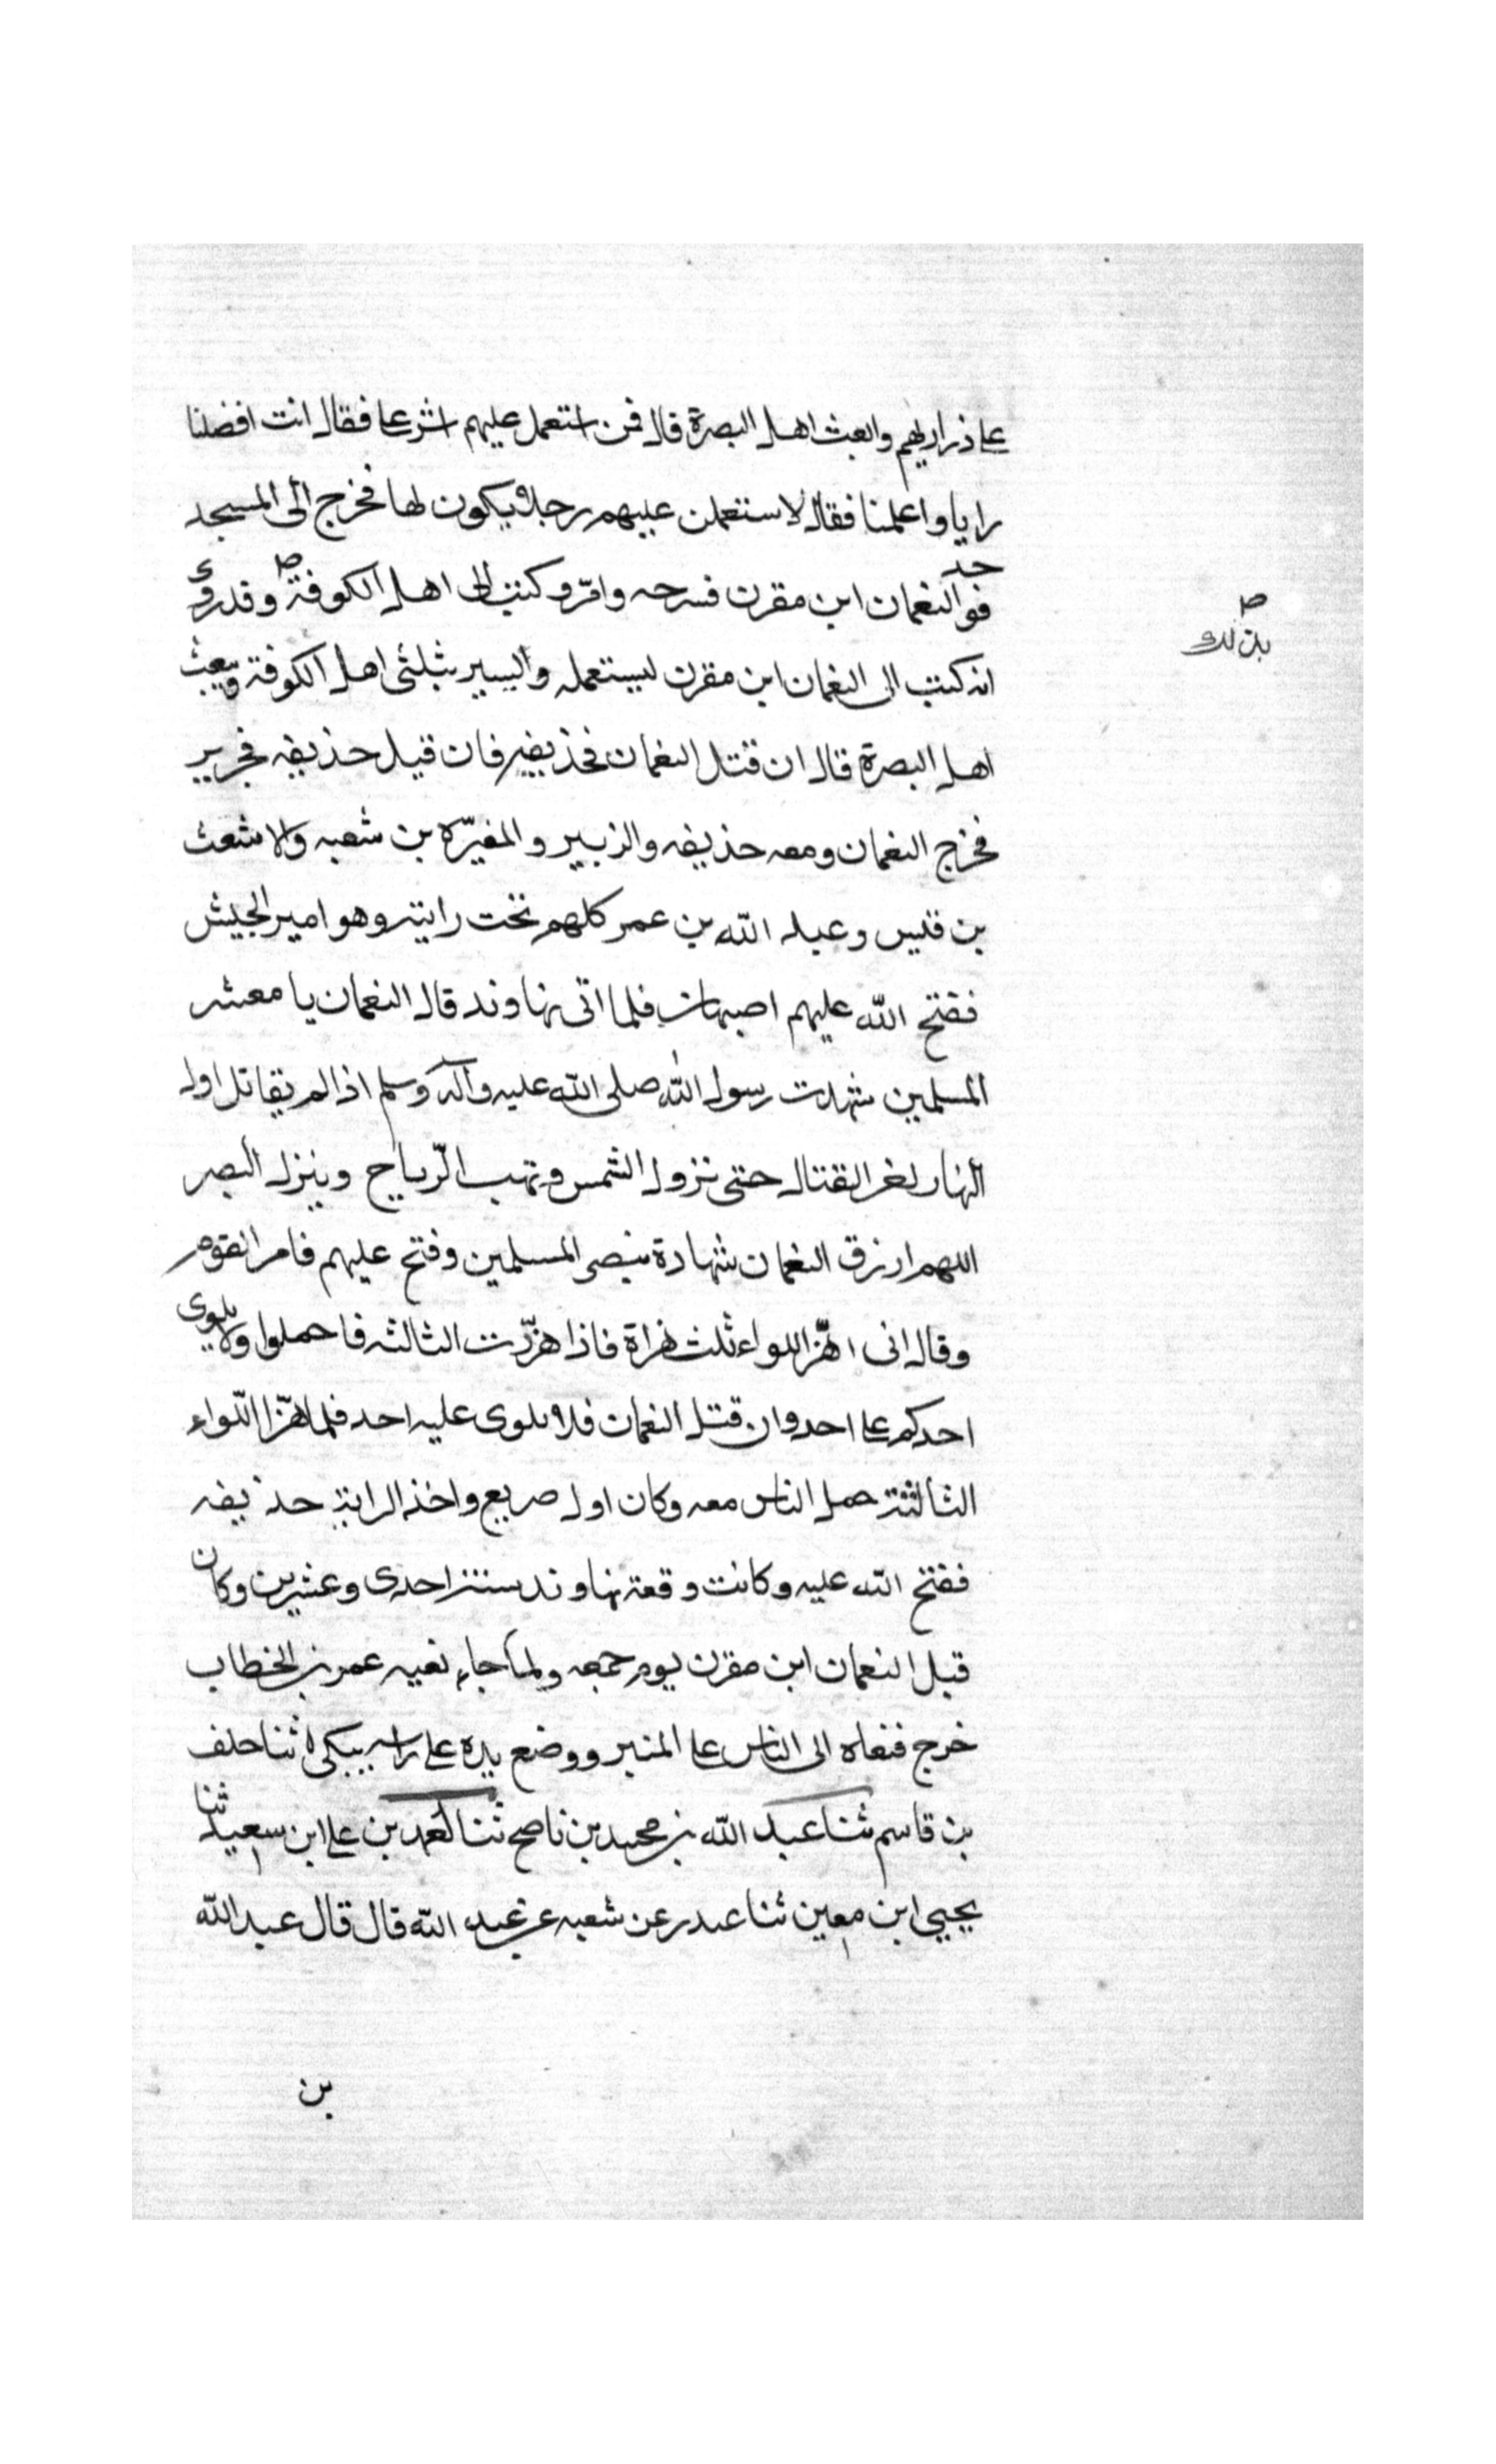 على ذراريهم وابعث اهل البصرة قال فمن استعمل عليهم اشر على فقال انت افضلنا
رايا واعلمنا فقال لاستعملن عليهم رجلا يكون لها فخرج الى المسجد
فوجد النعمان ابن مقرن فسرحه وامره وكتب الى اهل الكوفة وقد روى
بذلك
انه كتب الى النعمان ابن مقرن ليستعمله واليسير بثلثى اهل الكوفة ويبعث
اهل البصرة قال ان قتل النعمان فحذيفة فان قيل حذيفه فجرير
فخرج النعمان ومعه حذيفه والزبير والمغيّره بن شعبه والاشعث
بن قيس وعبد الله بن عمر كلهم تحت رايته وهو امير الجيش
ففتح الله عليهم اصبهان فلما اتى نهاوند قال النعمان يا معشر
المسلمين شهدت رسول الله صلى الله عليه وآله وسلم اذا لم يقاتل اول
النهار القتال حتى تزول الشمس وتهب الرّياح وينزل البصر
اللهم ارزق النعمان شهادة بنصر المسلمين وفتح عليهم فامر القوم
وقال انى اهّز اللواء ثلث هزاة فاذا هزّرت الثالثه فاحملوا ولا يلوى
احدكم على احد وان قتل النعمان فلا يلوى عليه احد فلما هزّ اللّواء
الثالثة حمل الناس معه وكان اول صريع واخذ الراية حذيفه
ففتح الله عليه وكانت وقعة نهاوند سنة احدى وعشرين وكان
قبل النعمان ابن مقرن يوم جمعه ولما جاء نعيه عمر بن الخطاب
خرج فنعاه الى الناس على المنبر ووضع يده على راسه يبكى ثنا خلف
بن قاسم ثنا عبد الله بن محمد بن ناصح ثنا احمد بن على ابن سعيد ثنا
يحيى ابن معين ثنا غندر عن شعبه عن عبد الله قال قال عبد الله
بن